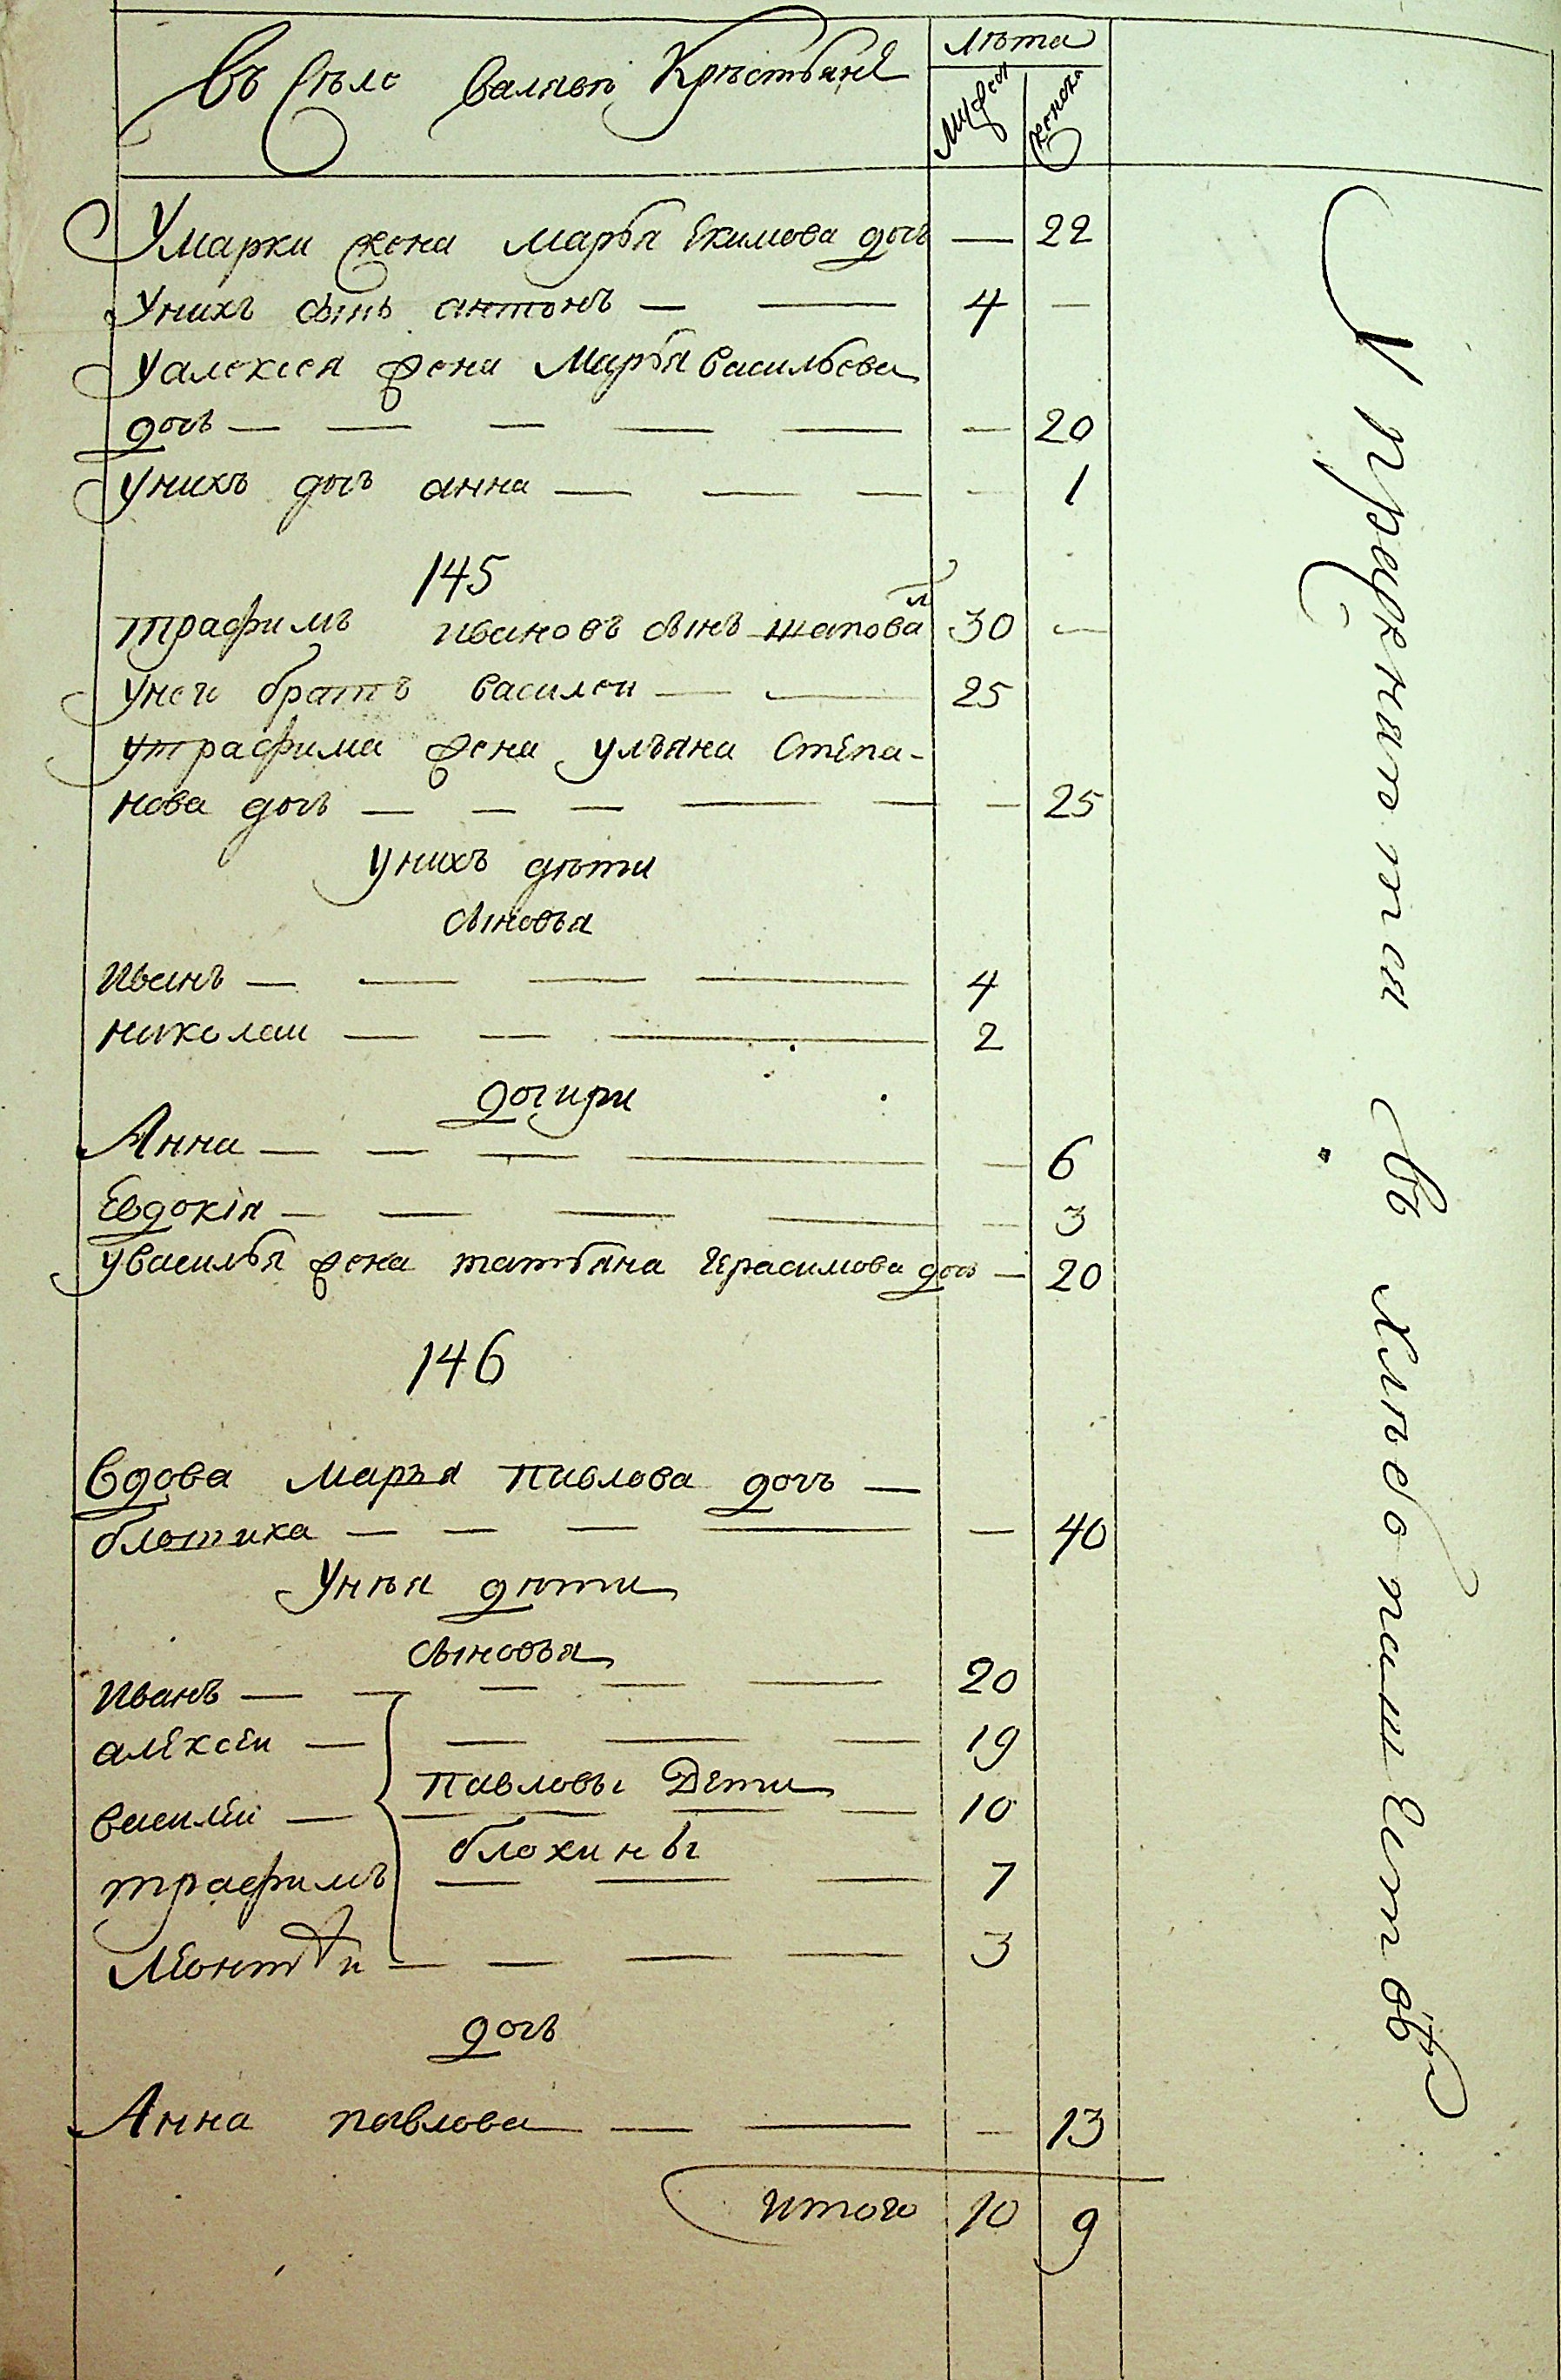 Въ Сѣлѣ Крѣстьянѣ
лѣта
мужеска
женска
Умарки жена марья Екимова дочь — 22
Унихъ сынъ антонъ — — 4 —
Уалексея жена Марья васильева
дочь — — — — — — 20
Унихъ дочь анна — — — — 1
145
трафимъ ивановъ сынъ шаповал 30 —
Унеи братъ василеи — — 25
Утрафима жена ульяна Степа-
нова дочь — — — — — — 25
Унихъ дѣти
сыновья
иванъ — — — — 4
николаи — — — 2
дочири
Анна — — — — — 6
Евдокія — — — — — 3
Увасилья жена татьяна Герасимова дочь — 20
146
Вдова марья павлова дочь —
блотиха — — — — — 40
Унѣя дѣти
сыновья
иванъ — — — — — 20
алексеи — — — — 19
павловы Дети
василеи — — — — — 10
блохины
трафимъ — — — 7
Леонтеи — — — — 3
дочь
Анна павлова — — — 13
итого 10 9
Упражнѧются въ хлѣбопашествѣ